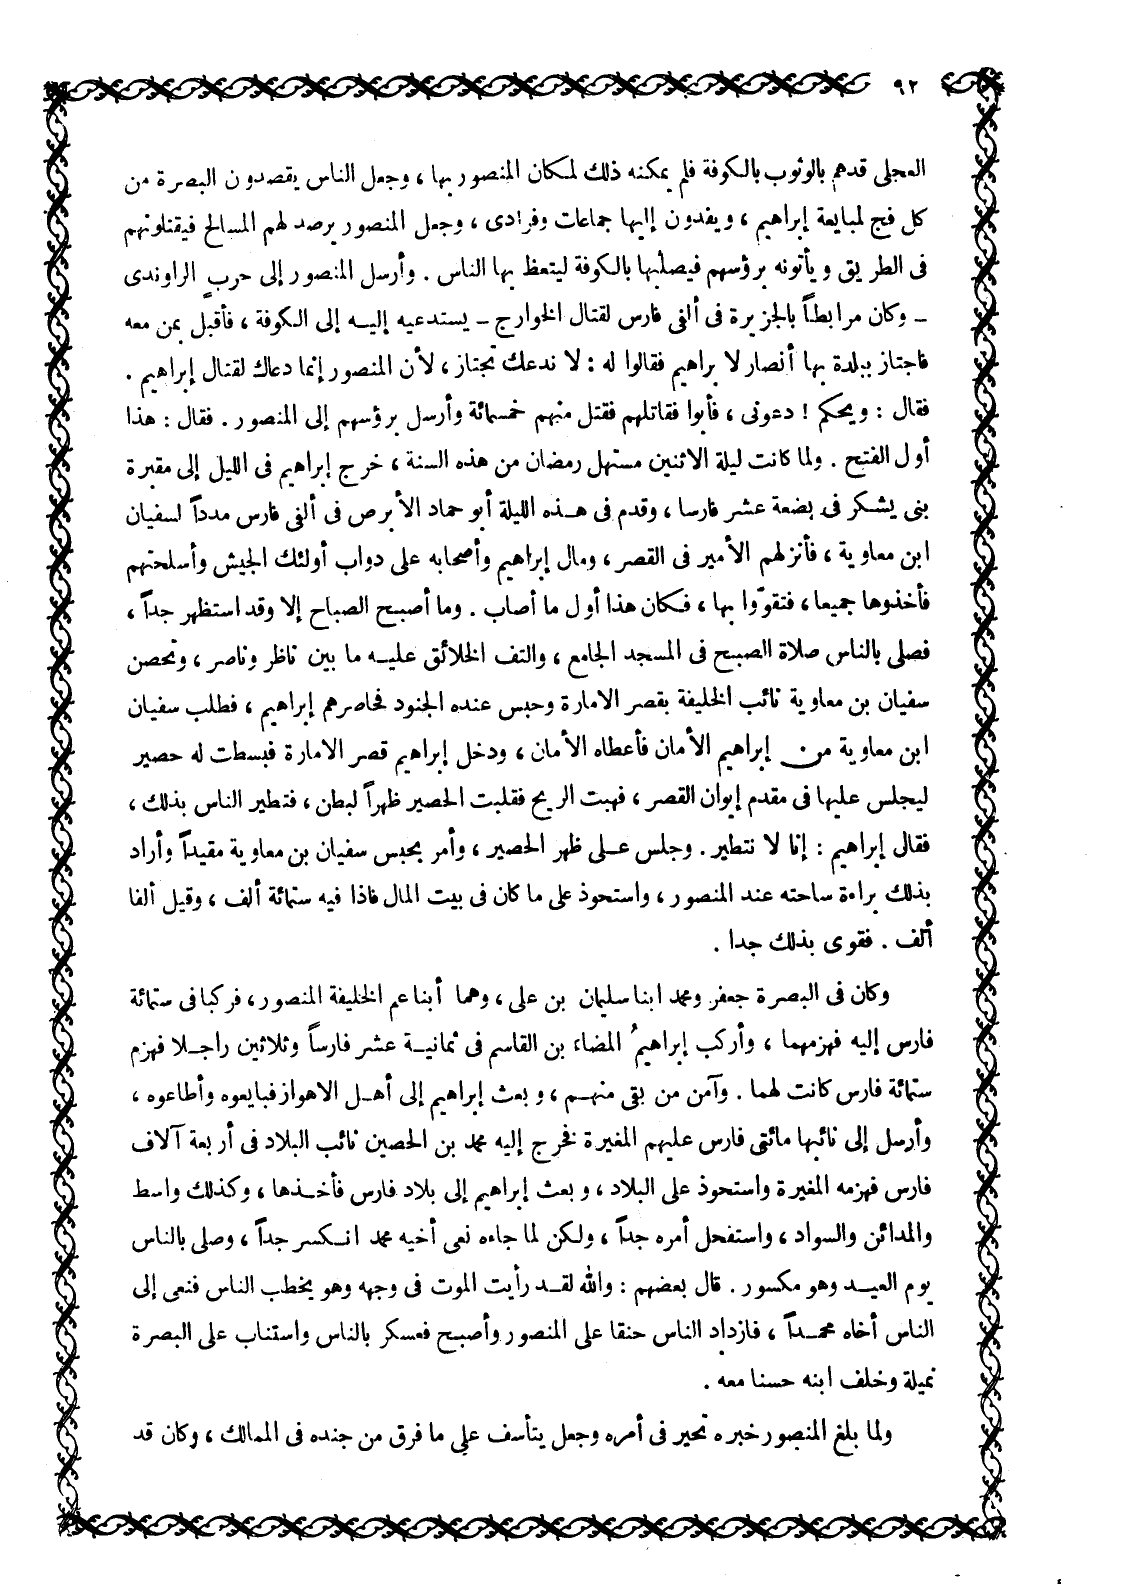 ٩٢
العجلى قدهم بالوثوب بالكوفة فلم يمكنه ذلك لمكان المنصور بها ، وجعل الناس يقصدون البصرة من
كل فج لمبايعة إبراهيم ، ويفدون إليها جماعات وفرادى ، وجعل المنصور يرصد لهم المسالح فيقتلونهم
فى الطريق ويأتونه برؤسهم فيصلبها بالكوفة ليتعظ بها الناس . وأرسل المنصور إلى حرب الراوندى
ـ وكان مرابطاً بالجزيرة فى ألفى فارس لقتال الخوارج ـ يستدعيه إليه إلى الكوفة ، فأقبل بمن معه
فاجتاز ببلدة بها أنصار لا براهيم فقالوا له : لا ندعك تجتاز ، لأن المنصور إنما دعاك لقتال إبراهيم .
فقال : ويحكم ! دعونى ، فأبوا فقاتلهم فقتل منهم خمسمائة وأرسل برؤسهم إلى المنصور . فقال : هذا
أول الفتح . ولما كانت ليلة الاثنين مستهل رمضان من هذه السنة ، خرج إبراهيم فى الليل إلى مقبرة
بنى يشكر فى بضعة عشر فارسا ، وقدم فى هذه الليلة أبو حماد الأبرص فى ألفى فارس مدداً لسفيان
ابن معاوية ، فأنزلهم الأمير فى القصر ، ومال إبراهيم وأصحابه على دواب أولئك الجيش وأسلحتهم
فأخذوها جميعا ، فتقوّوا بها ، فكان هذا أول ما أصاب . وما أصبح الصباح إلا وقد استظهر جداً ،
فصلى بالناس صلاة الصبح فى المسجد الجامع ، والتف الخلائق عليه ما بين ناظر وناصر ، وتحصن
سفيان بن معاوية نائب الخليفة بقصر الامارة وحبس عنده الجنود فحاصرهم إبراهيم ، فطلب سفيان
ابن معاوية من إبراهيم الأمان فأعطاه الأمان ، ودخل إبراهيم قصر الامارة فبسطت له حصير
ليجلس عليها فى مقدم إيوان القصر ، فهبت الريح فقلبت الحصير ظهراً لبطن ، فتطير الناس بذلك ،
فقال إبراهيم : إنا لا نتطير . وجلس على ظهر الحصير ، وأمر بحبس سفيان بن معاوية مقيداً وأراد
بذلك براءة ساحته عند المنصور ، واستحوذ على ما كان فى بيت المال فاذا فيه ستمائة ألف ، وقيل ألفا
ألف . فقوى بذلك جدا .
وكان فى البصرة جعفر ومحمد ابنا سليمان بن على ، وهما أبنا عم الخليفة المنصور ، فركبا فى ستمائة
فارس إليه فهزمهما ، وأركب إبراهيمُ المضاء بن القاسم فى ثمانية عشر فارساً وثلاثين راجلا فهزم
ستمائة فارس كانت لهما . وآمن من بقى منهم ، وبعث إبراهيم إلى أهل الاهواز فبايعوه وأطاعوه ،
وأرسل إلى نائبها مائتى فارس عليهم المغيرة فخرج إليه محمد بن الحصين نائب البلاد فى أربعة آلاف
فارس فهزمه المغيرة واستحوذ على البلاد ، وبعث إبراهيم إلى بلاد فارس فأخذها ، وكذلك واسط
والمدائن والسواد ، واستفحل أمره جداً ، ولكن لما جاءه نعى أخيه محمد انكسر جداً ، وصلى بالناس
يوم العيد وهو مكسور . قال بعضهم : والله لقد رأيت الموت فى وجهه وهو يخطب الناس فنعى إلى
الناس أخاه محمداً ، فازداد الناس حنقا على المنصور وأصبح فعسكر بالناس واستناب على البصرة
نميلة وخلف ابنه حسنا معه .
ولما بلغ المنصور خبره تحير فى أمره وجعل يتأسف على ما فرق من جنده فى الممالك ، وكان قد